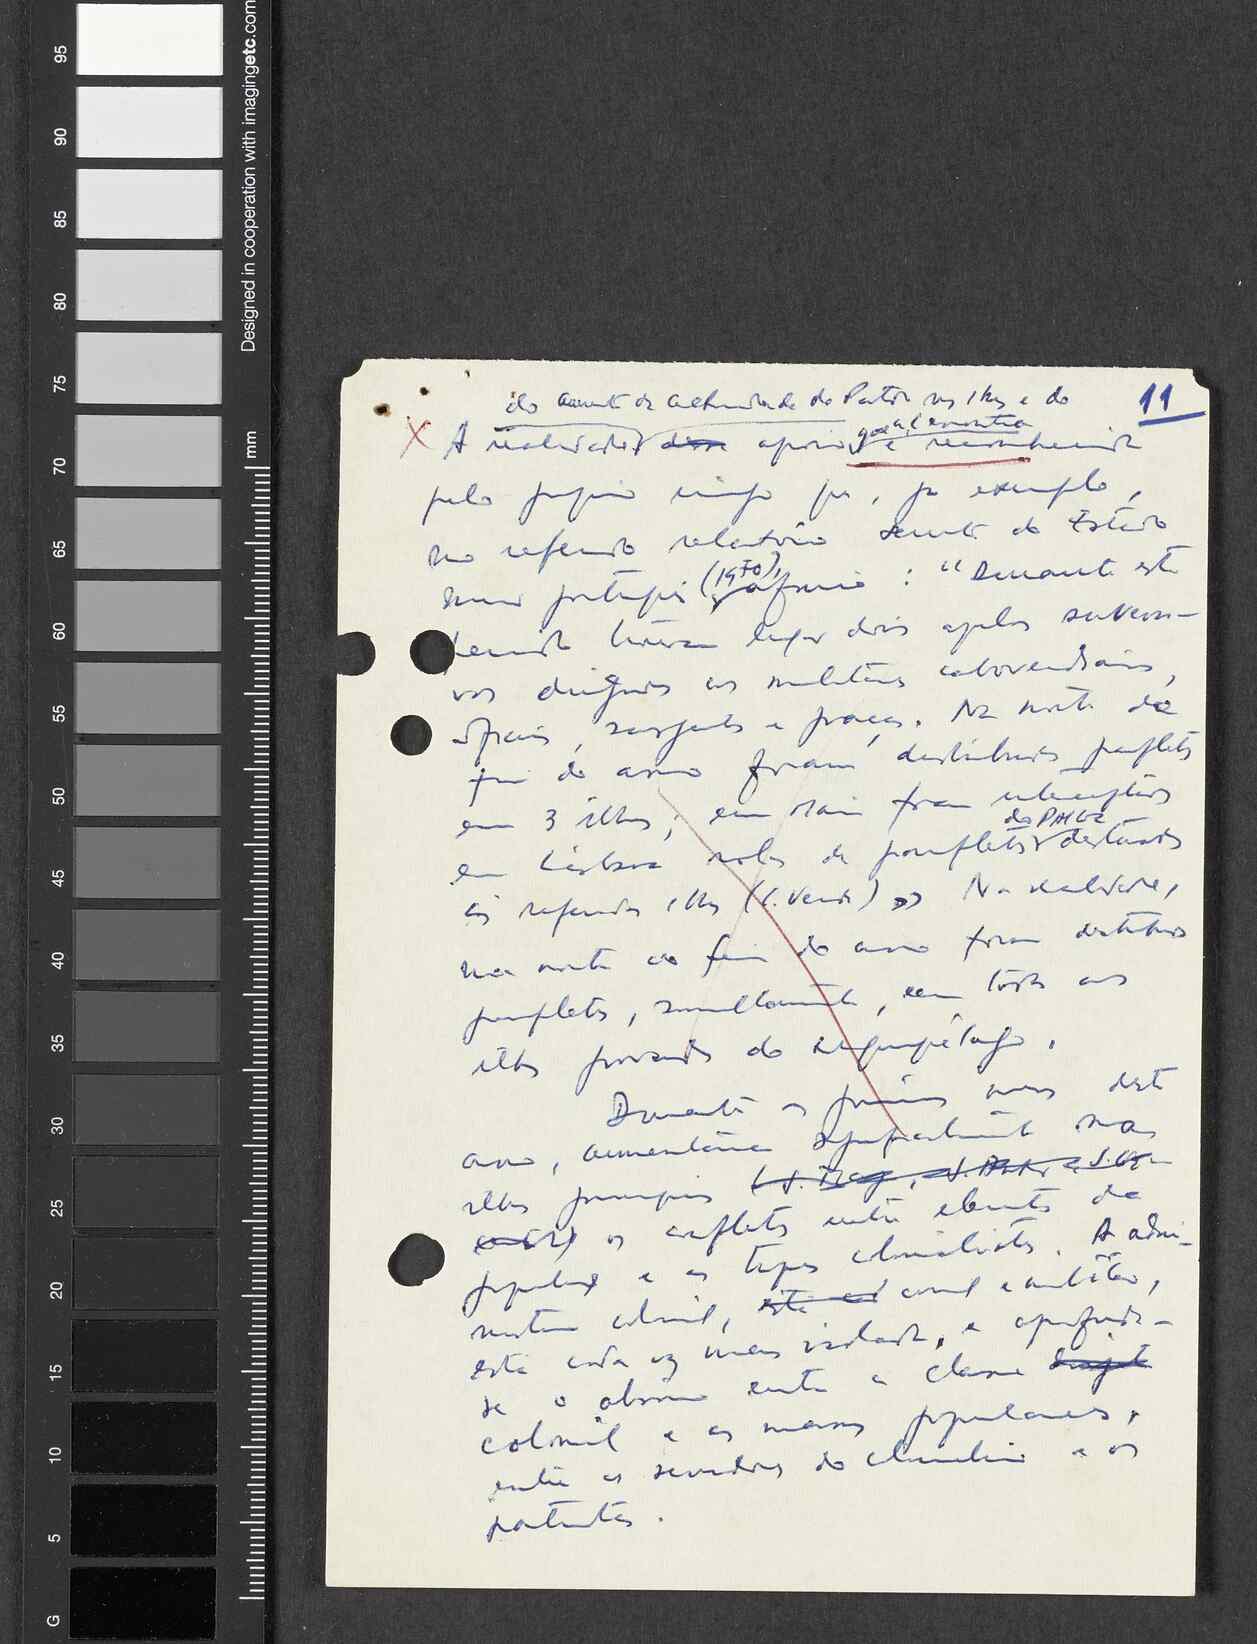 95
90
85
80
75
70
65
60
55
50
45
40
35
30
25
20
15
10
5
G
Designed in cooperation with imagingetc.com
mm
11
do aumento da actividade do Partido nas ilhas e do
que aí encontra
A realidade desse apoio é reconhecida
pelo próprio inimigo que, por exemplo,
no referido relatório secreto do Estado
(1970),
português afirma : "Durante este
tiveram lugar dois apelos subversi-
vos dirigidos aos militares caboverdianos,
oficiais, sargentos e praças. Na noite de
fim do ano foram distribuidos panfletos
em 3 ilhas; em foram
do PAIGC
em Lisboa rolos de panfletos destinados
às referidas ilhas (C. Verde)" Na realidade,
na noite do fim do ano foram distribuidos
panfletos, simultaneamente, em todas as
ilhas povoadas do arquipélago.
Durante os primeiros meses deste
ano, aumentaram nas
ilhas principais
os conflitos entre elementos da
população e as tropas colonialistas. A admi-
nistração colonial, civil e militar,
está cada vez mais isolada, e aprofunda-
se o abismo entre a classe
colonial e as massas populares,
entre os servidores do colonialismo e os
patriotas.